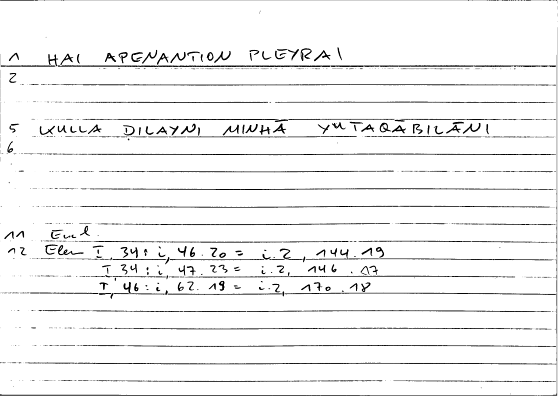 1 HAI APENANTION PLEYRAI
2
5 KULLA DILAYNI MINHĀ YUTAQĀBILĀNI
6
11 Eucl
12 Elem I, 34 : i, 46.20 = i.2, 144.19
I, 34 : i, 47.23 = i.2, 146.17
I, 46 : i, 62.19 = i.2, 170.18